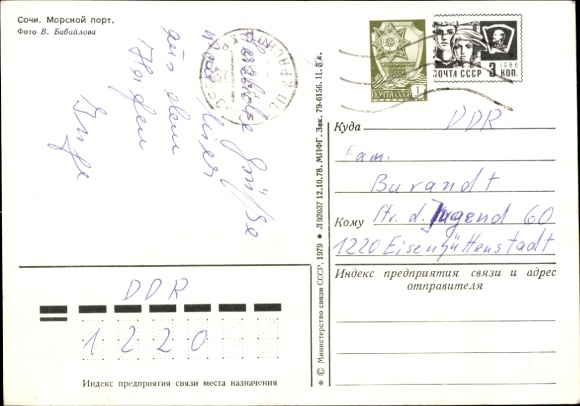 Сочи. Морской порт.
Фото В. Бабайлова
Herzliche Grüße
und hier
aus dem
Hafen
Inge
ПОЧТА СССР 1
ПОЧТА СССР 3 КОП. 1966
Куда DDR
Fam.
Burandt
Кому Str. d. Jugend 60
1220 Eisenhüttenstadt
Индекс предприятия связи и адрес
отправителя
DDR
1220
Индекс предприятия связи места назначения
* © Министерство связи СССР, 1979 ● Л 92037 12.10.78. МПФГ. Зак. 79-6156. Ц. 5 к.